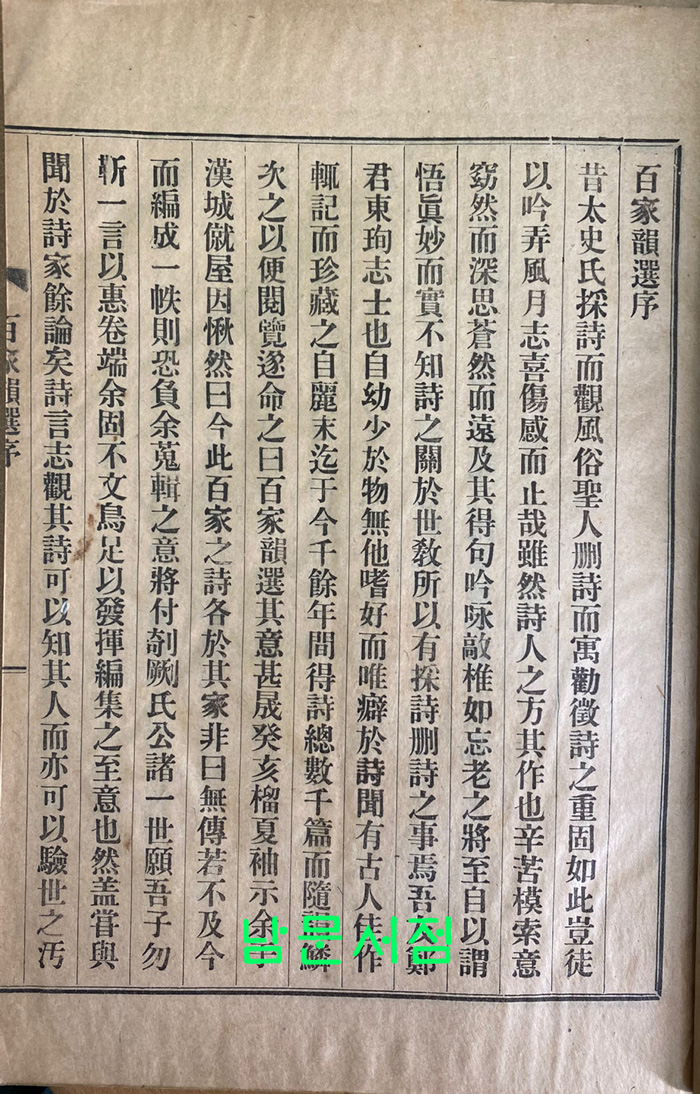 百家韻選序
昔太史氏採詩而觀風俗聖人刪詩而寓勸徵詩之重固如此豈徒
以吟弄風月志喜傷感而止哉雖然詩人之方其作也辛苦模索意
窈然而深思蒼然而遠及其得句吟咏敲椎如忘老之將至自以謂
悟眞妙而實不知詩之關於世敎所以有採詩刪詩之事焉吾友鄭
君東珣志士也自幼少於物無他嗜好而唯癖於詩聞有古人佳作
輒記而珍藏之自麗末迄于今千餘年間得詩總數千篇而隨韻鱗
次之以便閱覽遂命之曰百家韻選其意甚晟癸亥榴夏袖示余于
漢城僦屋因愀然曰今此百家之詩各於其家非曰無傳若不及今
而編成一帙則恐負余蒐輯之意將付剞劂氏公諸一世願吾子勿
靳一言以惠卷端余固不文烏足以發揮編集之至意也然盖甞與
聞於詩家餘論矣詩言志觀其詩可以知其人而亦可以驗世之汚
百家韻選序
방문서점